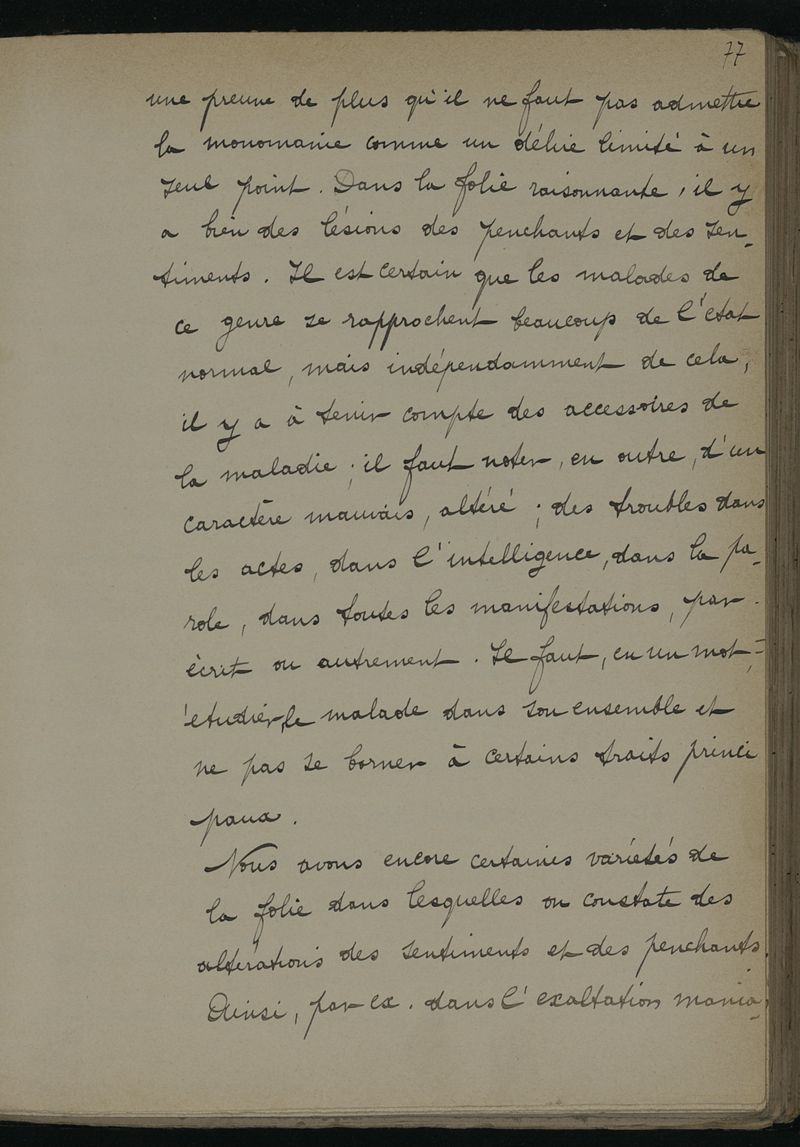 77
une preuve de plus qu'il ne faut pas admettre
la monomanie comme un délire limité à un
seul point. Dans la folie raisonnante, il y
a bien des lésions des penchants et des sen-
timents. Il est certain que les malades de
ce genre se rapprochent beaucoup de l'état
normal, mais indépendamment de cela,
il y a à tenir compte des accessoires de
la maladie ; il faut noter, en outre, d'un
caractère mauvais, altéré ; des troubles dans
les actes, dans l'intelligence, dans la pa-
role, dans toutes les manifestations, par
écrit ou autrement. Il faut, en un mot,
étudier le malade dans son ensemble et
ne pas se borner à certains traits princi
paux.
Nous avons encore certaines variétés de
la folie dans lesquelles on constate des
altérations des sentiments et des penchants.
Ainsi, par ex. dans l'exaltation mania-